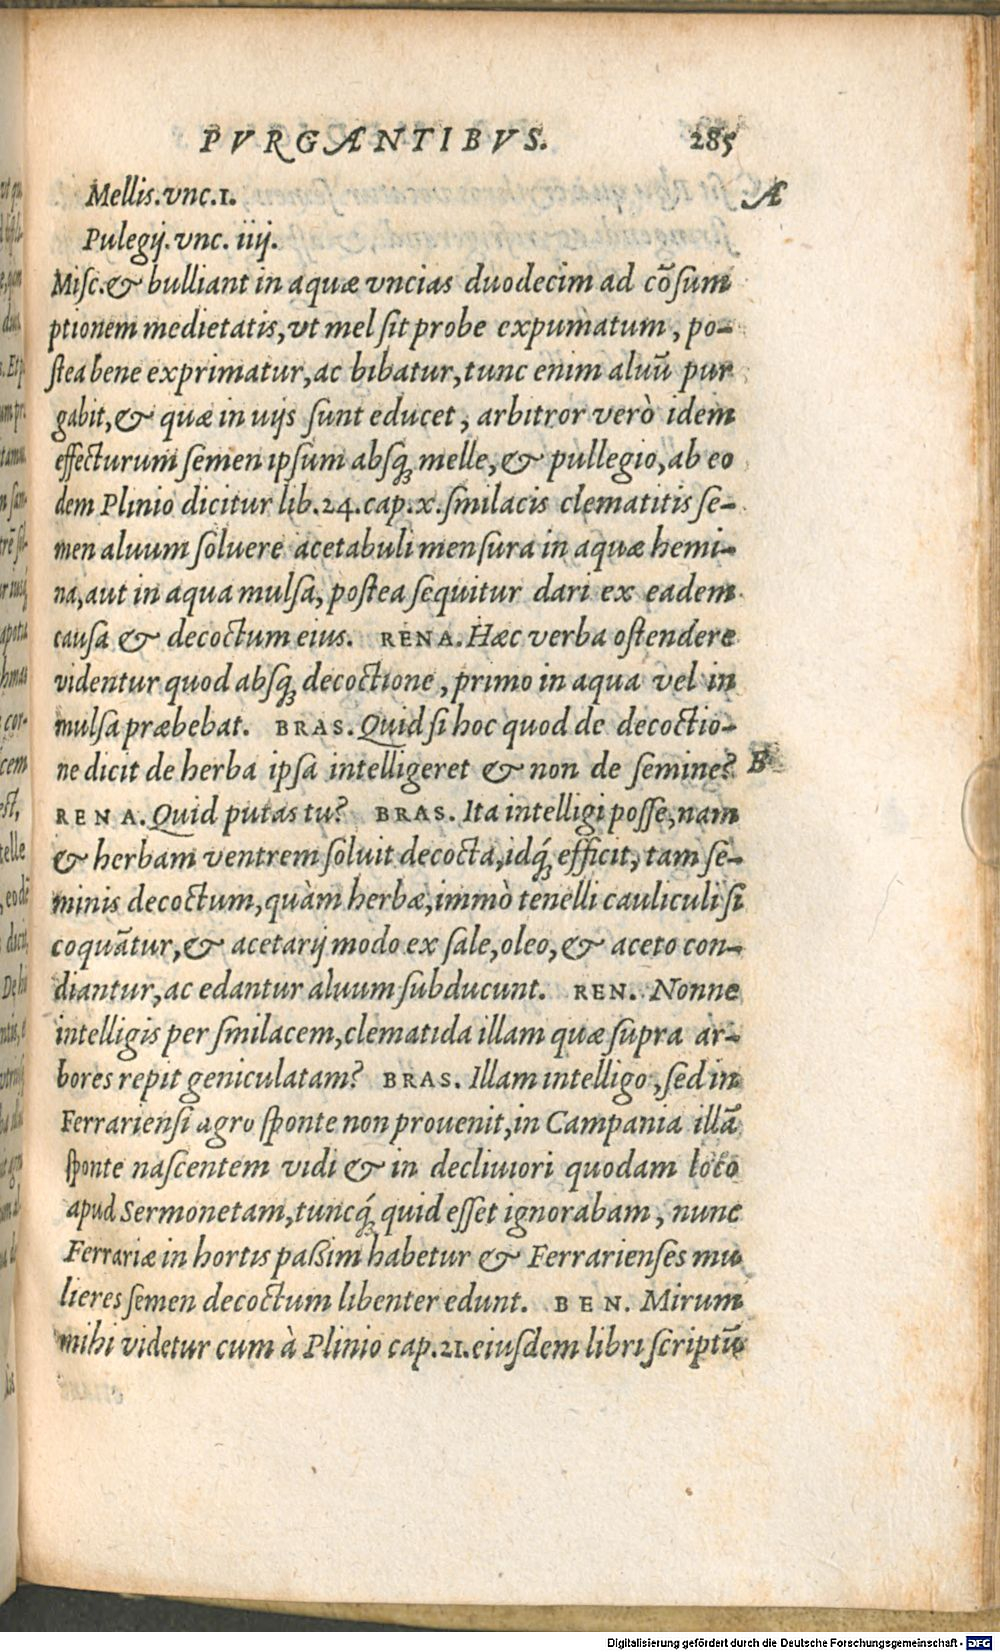 PVRGANTIBVS. 285
Mellis.vnc.1. A
Pulegij.vnc. iiij.
Misc.& bulliant in aquæ vncias duodecim ad cõsum
ptionem medietatis,vt mel sit probe expumatum, po-
stea bene exprimatur,ac bibatur,tunc enim aluũ pur
gabit,& quæ in uijs sunt educet, arbitror verò idem
effecturum semen ipsum absq; melle,& pullegio,ab eo
dem Plinio dicitur lib.24.cap.x.smilacis clematitis se-
men aluum soluere acetabuli mensura in aquæ hemi-
na,aut in aqua mulsa, postea sequitur dari ex eadem
causa & decoctum eius. RENA. Hæc verba ostendere
videntur quod absq; decoctione, primo in aqua vel in
mulsa præbebat. BRAS. Quid si hoc quod de decoctio-
ne dicit de herba ipsa intelligeret & non de semine? B
RENA. Quid putas tu? BRAS. Ita intelligi posse,nam
& herbam ventrem soluit decocta,idq́; efficit, tam se-
minis decoctum,quàm herbæ,immò tenelli cauliculi si
coquãtur,& acetarij modo ex sale,oleo,& aceto con-
diantur,ac edantur aluum subducunt. REN. Nonne
intelligis per smilacem,clematida illam quæ supra ar-
bores repit geniculatam? BRAS. Illam intelligo,sed in
Ferrariensi agro sponte non prouenit,in Campania illã
sponte nascentem vidi & in decliuiori quodam loco
apud Sermonetam,tuncq́; quid esset ignorabam, nunc
Ferrariæ in hortis paßim habetur & Ferrarienses mu
lieres semen decoctum libenter edunt. BEN. Mirum
mihi videtur cum à Plinio cap.21.eiusdem libri scriptũ
Digitalisierung gefördert durch die Deutsche Forschungsgemeinschaft - DFG